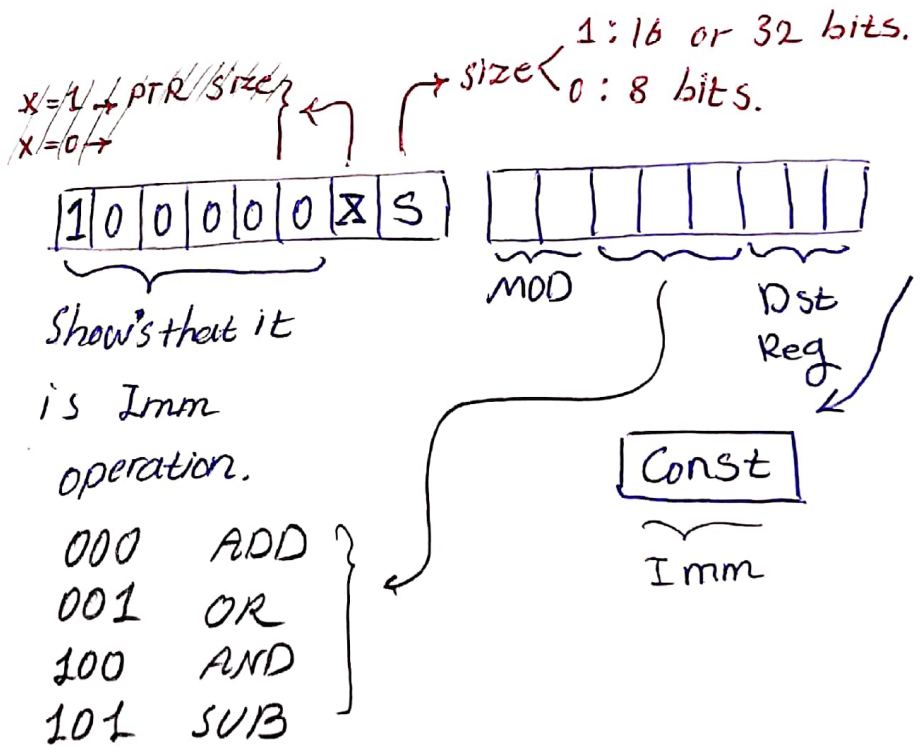 1 : 16 or 32 bits.
size
0 : 8 bits.
x = 1 → PTR size
x = 0 →
1 0 0 0 0 0 X S
MOD
Dst
Reg
Show's that it
is Imm
operation.
Const
Imm
000 ADD
001 OR
100 AND
101 SUB